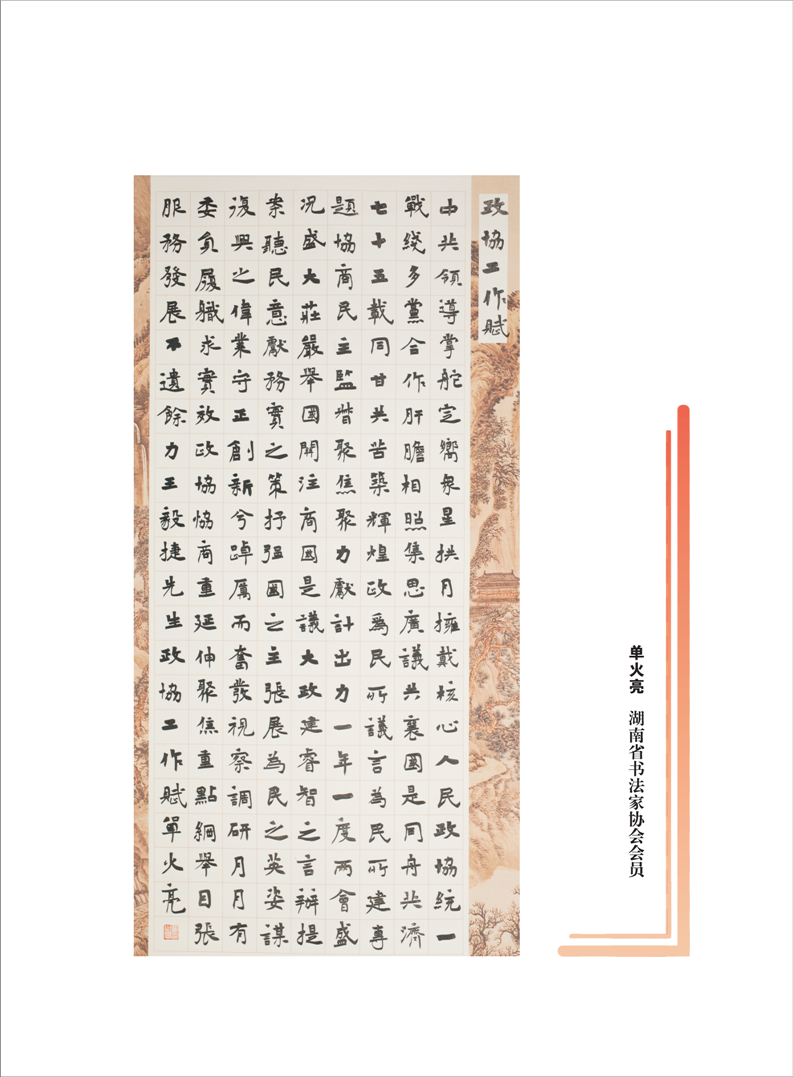 政協工作賦
中共領導掌舵定嚮衆星拱月擁戴核心人民政協統一
戰綫多黨合作肝膽相照集思廣議共襄國是同舟共濟
七十五載同甘共苦築輝煌政爲民所議言為民所建專
題協商民主監督聚焦聚力獻計出力一年一度兩會盛
况盛大莊嚴舉國關注商國是議大政建睿智之言辦提
案聽民意獻務實之策抒强國之主張展為民之英姿謀
復興之偉業守正創新兮踔厲而奮發視察調研月月有
委負履職求實效政協協商重延伸聚焦重點綱舉目張
服務發展不遺餘力王毅捷先生政協工作賦單火亮
单火亮 湖南省书法家协会会员